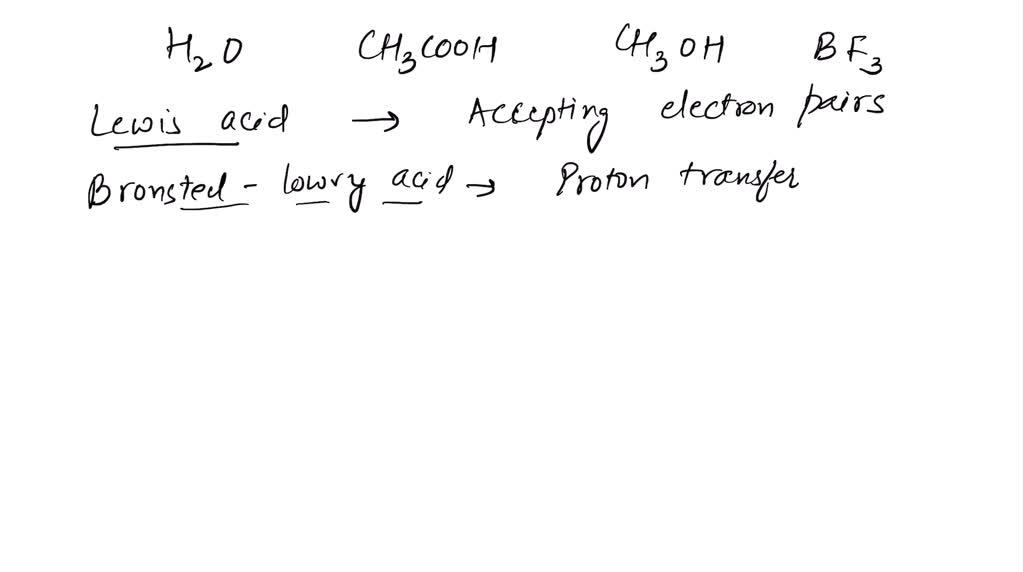 H₂O CH₃COOH CH₃OH BF₃
Lewis acid → Accepting electron pairs
Bronsted - lowry acid → Proton transfer